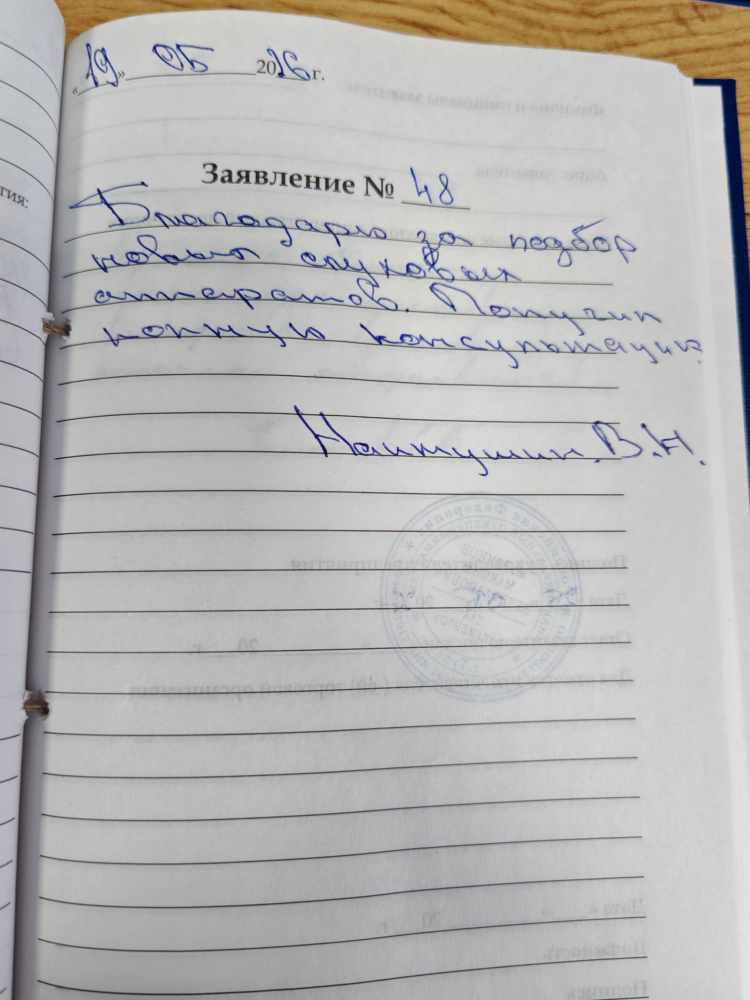 «19» 05 2026 г.
Заявление № 48
Благодарю за подбор
новых слуховых
аппаратов. Получил
полную консультацию.
В.Н.
гия: